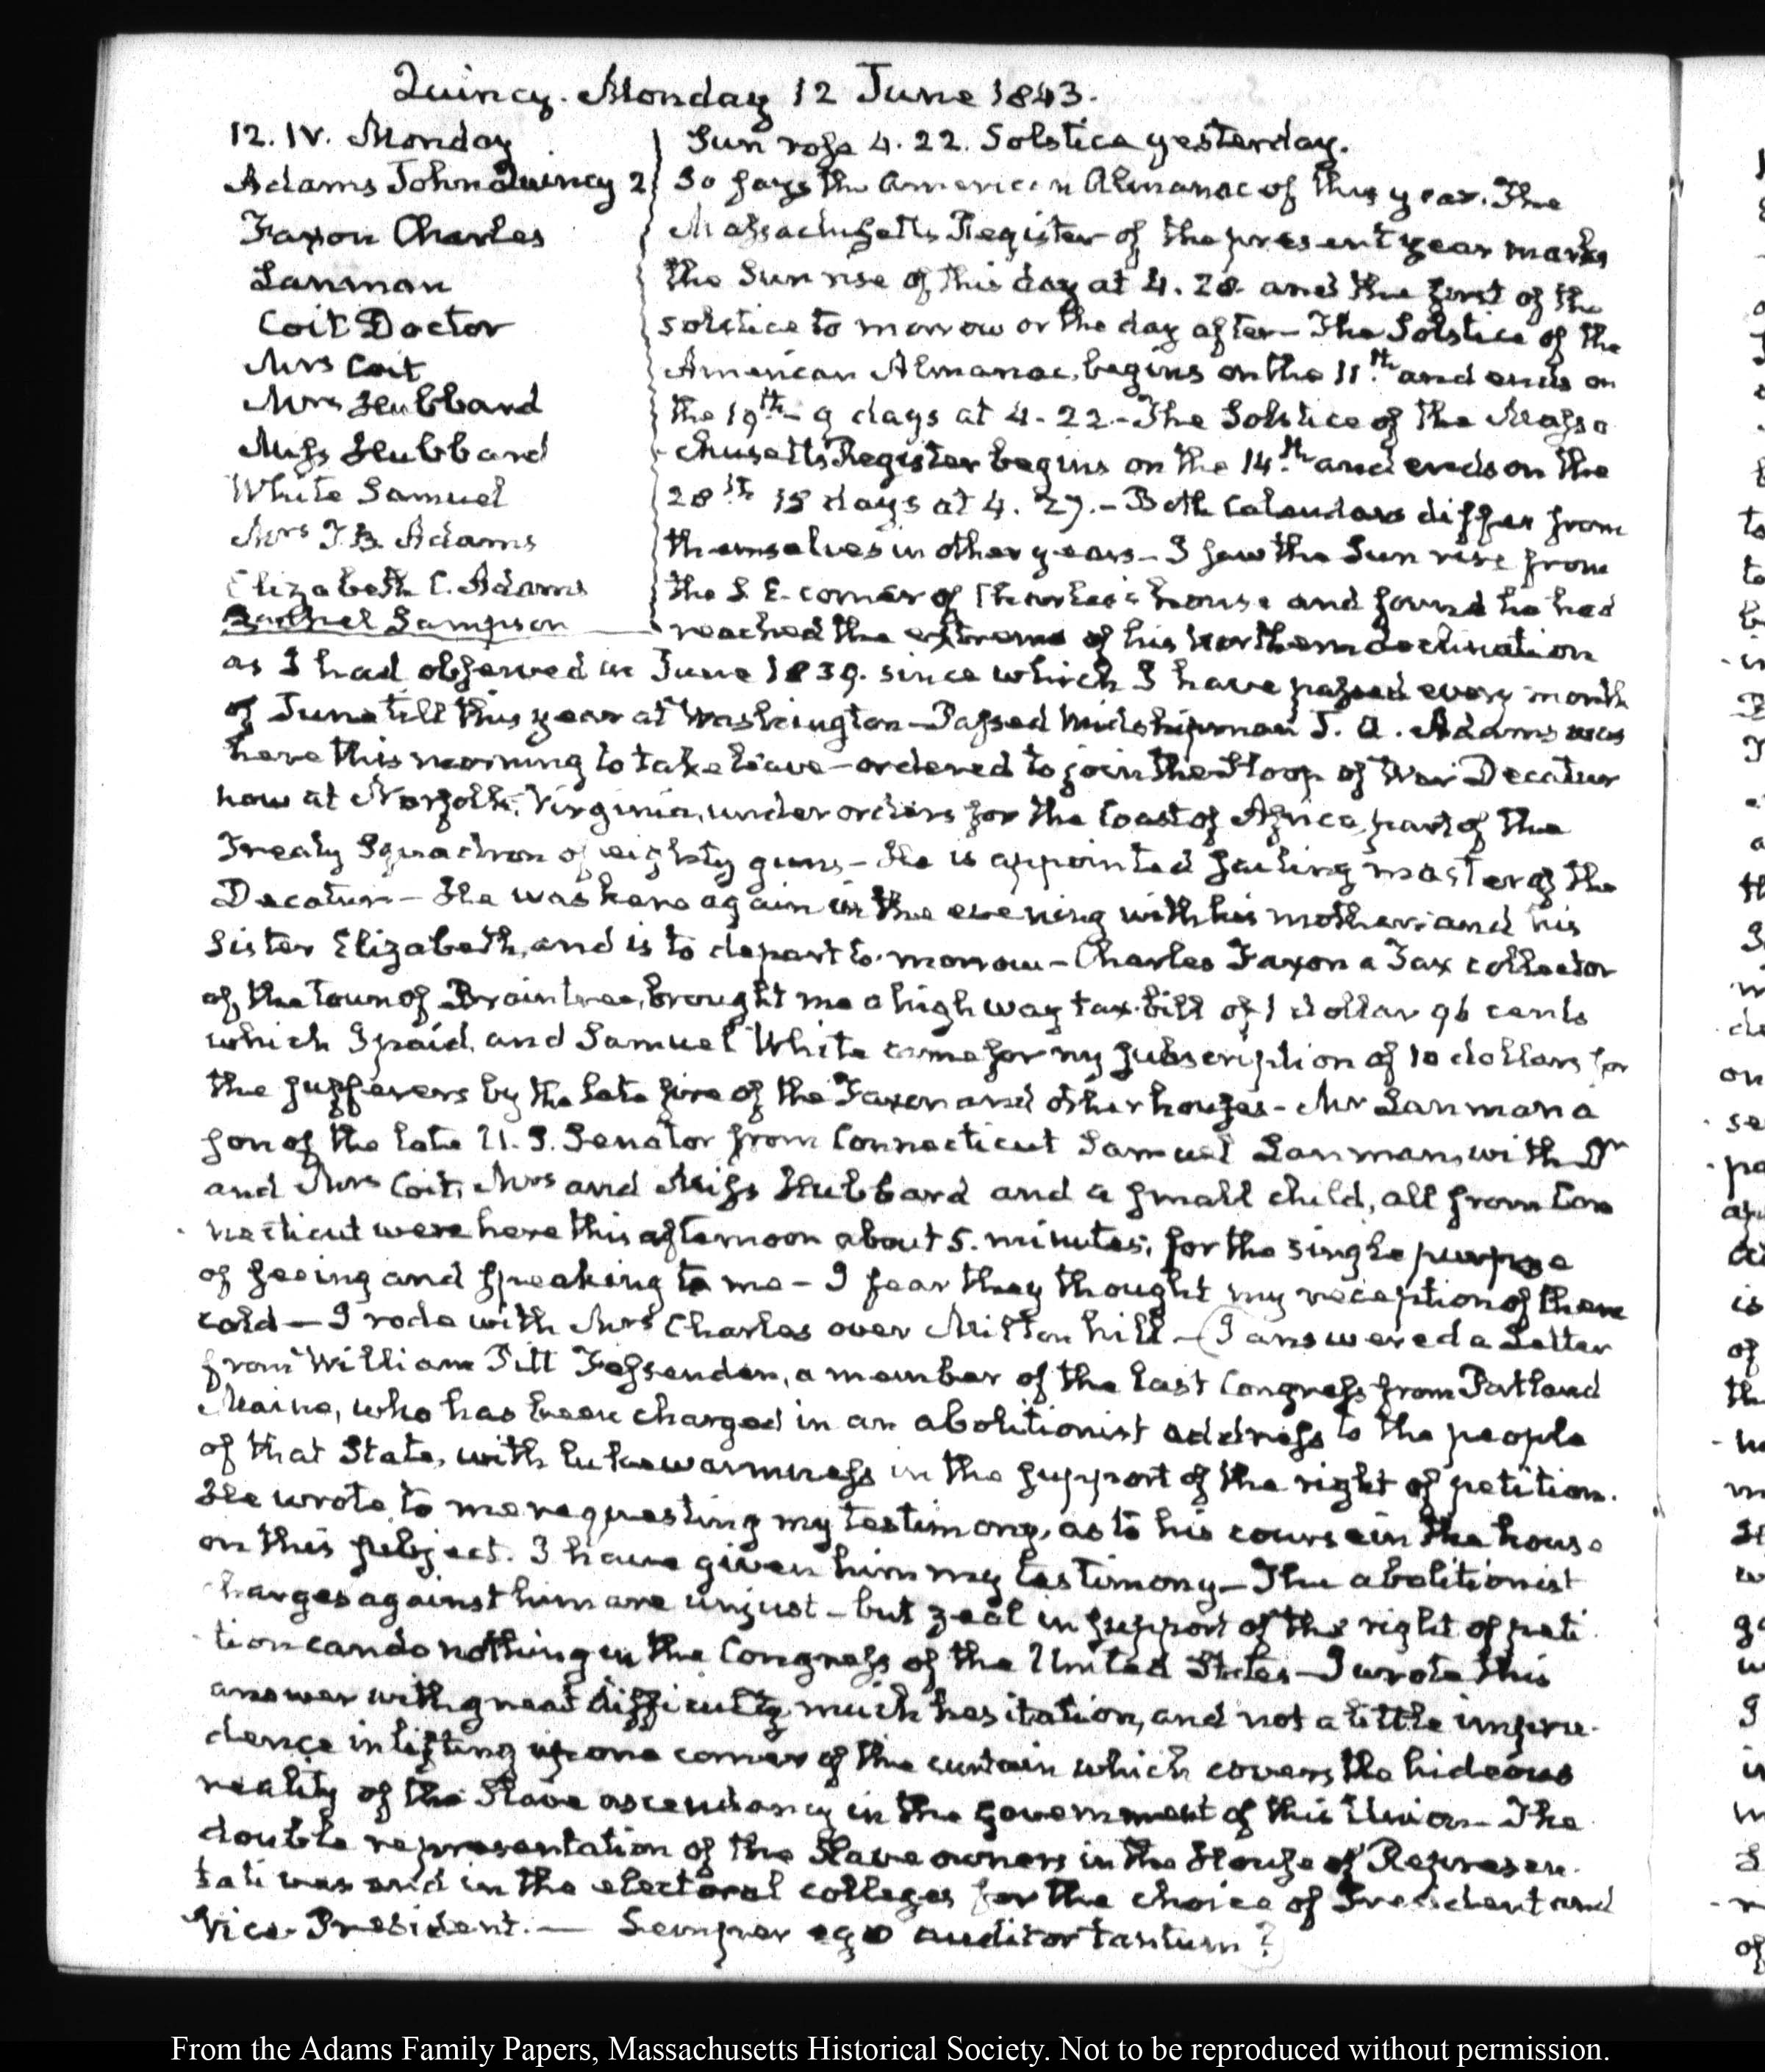 Quincy. Monday 12 June 1843.
12. IV. Monday
Adams John Quincy 2
Faxon Charles
Lanman
Coit Doctor
Mrs Coit
Mrs Hubbard
Miss Hubbard
White Samuel
Mrs T. B. Adams
Elizabeth C. Adams
Rachel Sampson
Sun rose 4. 22. Solstice yesterday.
So says the American Almanac of this year. The
Massachusetts Register of the present year marks
the Sun rise of this day at 4. 28 and the first of the
solstice to morrow or the day after — The Solstice of the
American Almanac, begins on the 11.th and ends on
the 19th — 9 days at 4. 22. — The Solstice of the Massa
chusetts Register begins on the 14.th and ends on the
28th 15 days at 4. 27. — Both Calendars differ from
themselves in other years — I saw the Sun rise from
the S. E. corner of Charles's house and found he had
reached the extreme of his Northern declination
as I had observed in June 1839. since which I have passed every month
of June till this year at Washington — Passed Midshipman J. Q. Adams was
here this morning to take leave — ordered to join the Sloop of War Decatur
now at Norfolk, Virginia, under orders for the Coast of Africa, part of the
Treaty Squadron of eighty guns — He is appointed sailing master of the
Decatur — He was here again in the evening with his mother and his
Sister Elizabeth, and is to depart to-morrow — Charles Faxon a Tax collector
of the town of Braintree, brought me a high way tax-bill of 1 dollar 96 cents
which I paid, and Samuel White came for my subscription of 10 dollars for
the sufferers by the late fire of the Faxon and other houses — Mr Lanman a
son of the late U. S. Senator from Connecticut Samuel Lanman, with Dr
and Mrs Coit, Mrs and Miss Hubbard and a small child, all from Con
necticut were here this afternoon about 5. minutes, for the single purpose
of seeing and speaking to me — I fear they thought my reception of them
cold — I rode with Mrs Charles over Milton hill — (I answered a Letter
from William Pitt Fessenden, a member of the last Congress from Portland
Maine, who has been charged in an abolitionist address to the people
of that State, with lukewarmness in the support of the right of petition.
He wrote to me requesting my testimony, as to his course in the house
on this subject. I have given him my testimony — The abolitionist
charges against him are unjust — but zeal in support of the right of peti
tion can do nothing in the Congress of the United States — I wrote this
answer with great difficulty, much hesitation, and not a little impru-
dence in lifting up one corner of the curtain which covers the hideous
reality of the Slave ascendancy in the government of this Union — The
double representation of the Slave owners in the House of Represen-
tatives and in the electoral colleges for the choice of President and
Vice-President. — Semper ego auditor tantum?
From the Adams Family Papers, Massachusetts Historical Society. Not to be reproduced without permission.